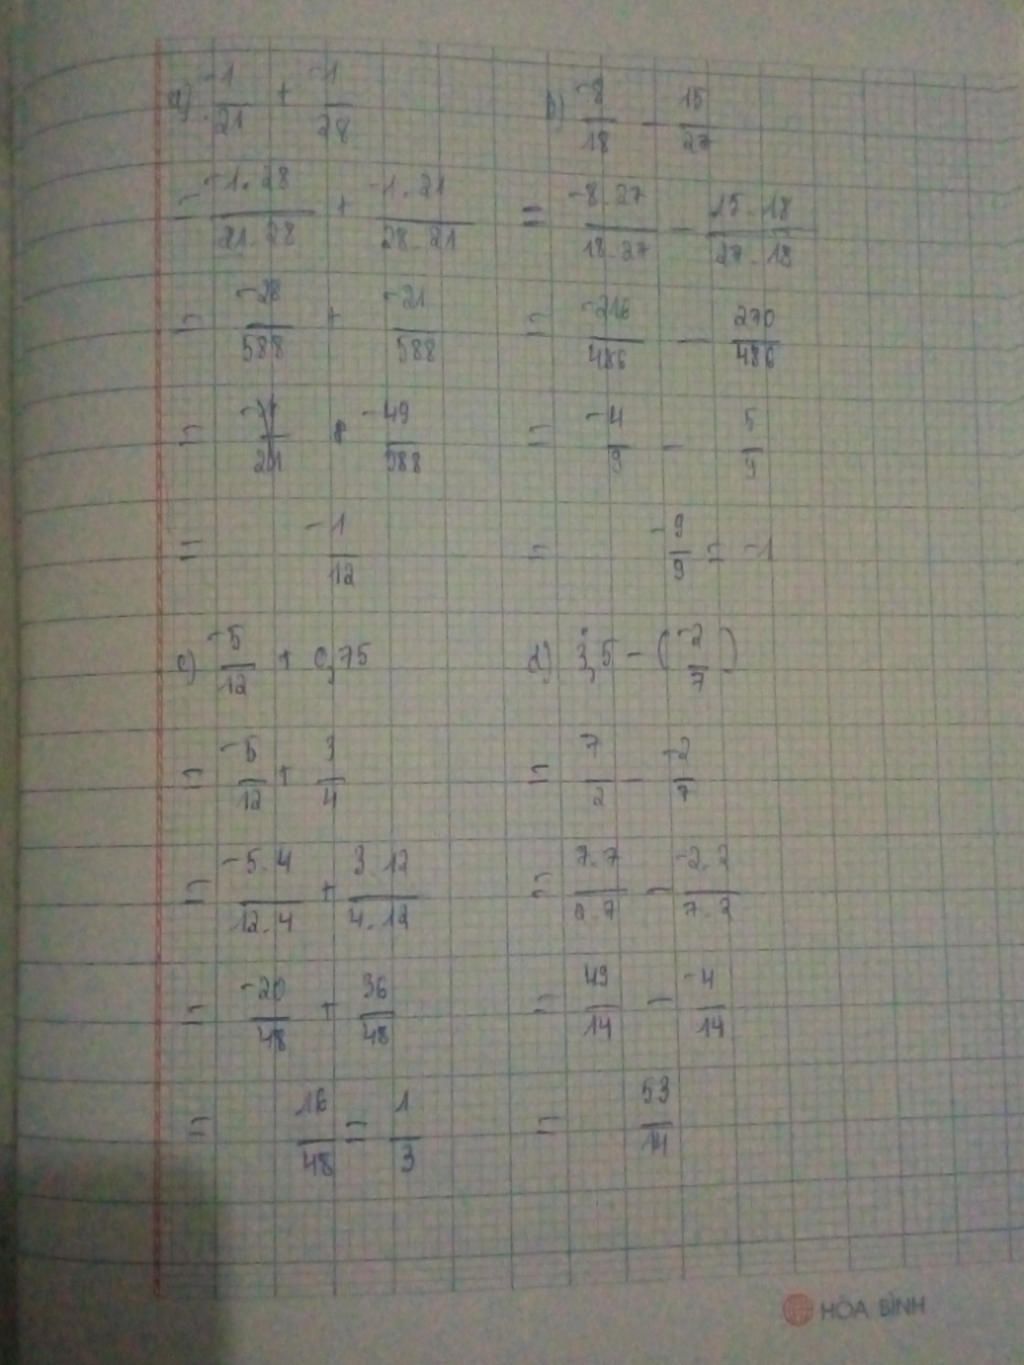 a) -1/21 + -1/28
= -1.28/21.28 + -1.21/28.21
= -28/588 + -21/588
= -49/588
= -1/12
b) -8/18 - 15/27
= -8.27/18.27 - 15.18/27.18
= -216/486 - 270/486
= -4/9 - 5/9
= -9/9 = -1
c) -5/12 + 0,75
= -5/12 + 3/4
= -5.4/12.4 + 3.12/4.12
= -20/48 + 36/48
= 16/48 = 1/3
d) 3,5 - (-2/7)
= 7/2 - -2/7
= 7.7/2.7 - -2.2/7.2
= 49/14 - -4/14
= 53/14
HÒA BÌNH